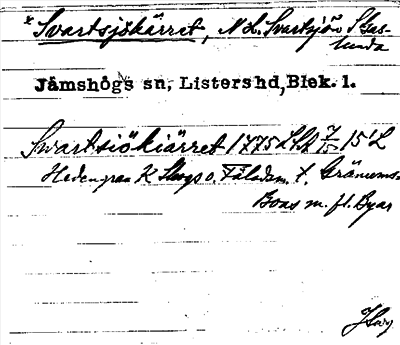 x Svartsjökärret, N.L. Svartsjön S Gas-
lunda
Jämshögs sn, Listershd, Blek. l.
Swartsiökiärret 1775 LSA 15'L
Hedengran K Skogs o. Fäladsm. t. Gränums-
Boas m. fl. Byar